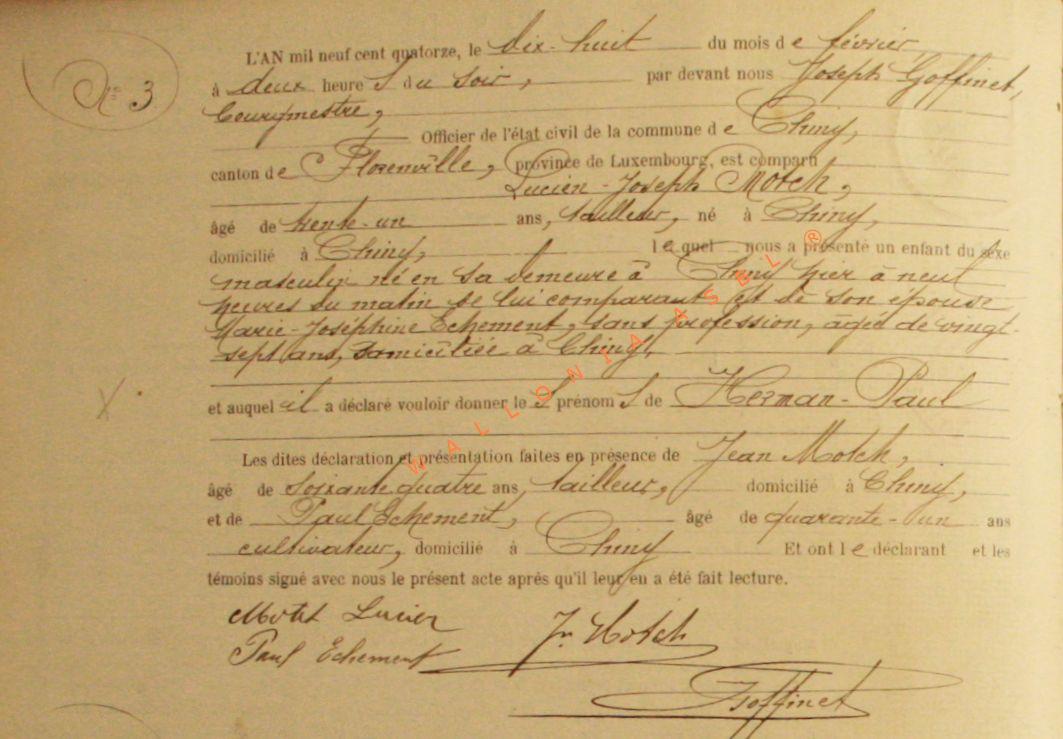 L'AN mil neuf cent quatorze, le dix-huit du mois de février
N° 3.
à deux heures du soir, par devant nous Joseph Goffinet,
bourgmestre,
Officier de l'état civil de la commune de Chiny,
canton de Florenville, province de Luxembourg, est comparu
Lucien-Joseph Motch,
âgé de trente-un ans, tailleur, né à Chiny,
domicilié à Chiny, lequel nous a présenté un enfant du sexe
masculin né en sa demeure à Chiny hier à neuf
heures du matin de lui comparant et de son épouse
Marie-Joséphine Echement, sans profession, âgée de vingt-
sept ans, domiciliée à Chiny,
et auquel il a déclaré vouloir donner les prénoms de Herman-Paul
Les dites déclaration et présentation faites en présence de Jean Motch,
âgé de soixante quatre ans, tailleur, domicilié à Chiny,
et de Paul Echement, âgé de quarante-un ans
cultivateur, domicilié à Chiny Et ont le déclarant et les
témoins signé avec nous le présent acte après qu'il leur en a été fait lecture.
Motch Lucien
Jn Motch
Paul Echement
JGoffinet
WALLONIA ASBL ®